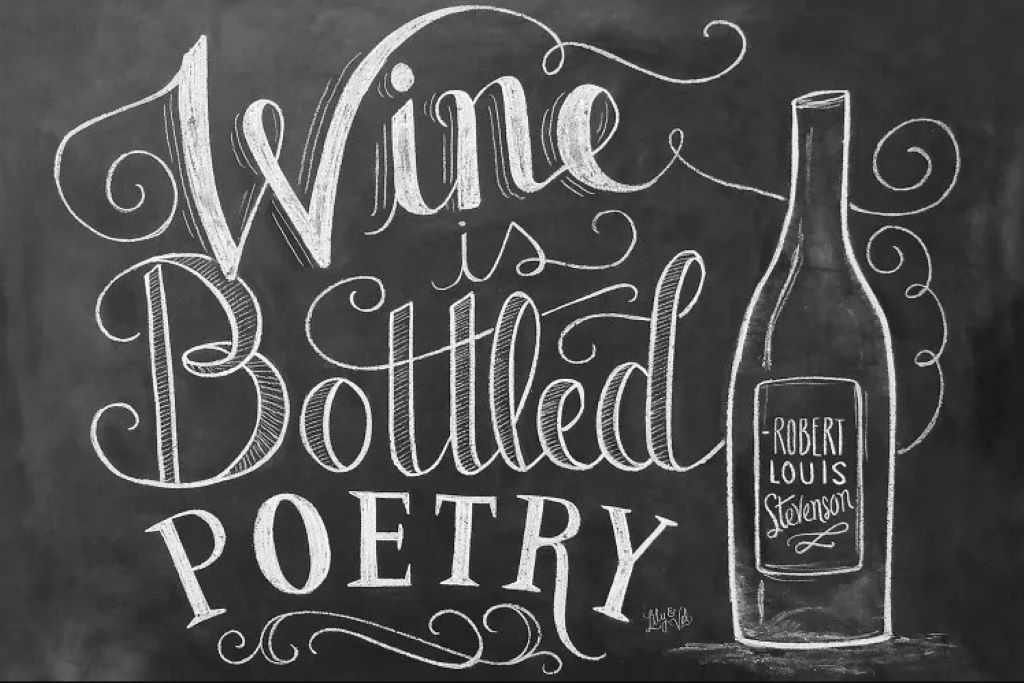 Wine
is
Bottled
POETRY
-ROBERT
LOUIS
Stevenson
Lily & Val